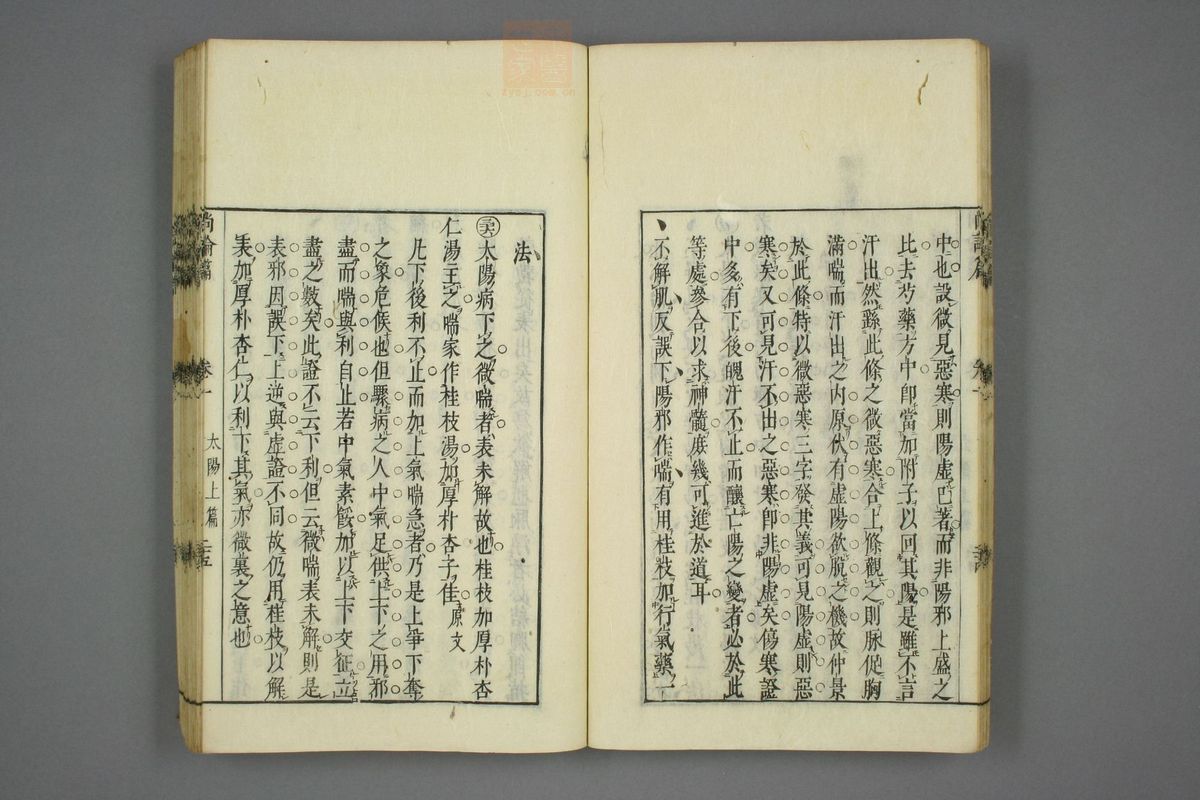 中也設微見惡寒則陽虛已著而非陽邪上盛之
比去芍藥方中卽當加附子以回其陽是雖不言
汗出然繇此條之微惡寒合上條觀之則脉促胸
滿喘而汗出之內原伏有虛陽欲脫之機故仲景
於此條特以微惡寒三字發其義可見陽虛則惡
寒矣又可見汗不出之惡寒卽非陽虛矣傷寒證
中多有下後魄汗不止而釀亡陽之變者必於此
等處參合以求神髓庶幾可進於道耳
不解肌反誤下陽邪作喘有用桂枝加行氣藥一
法
太陽病下之微喘者表未解故也桂枝加厚朴杏
仁湯主之喘家作桂枝湯加厚朴杏子佳原文
凡下後利不止而加上氣喘急者乃是上爭下奪
之象危候也但驟病之人中氣足供上下之用邪
盡而喘與利自止若中氣素餒加以上下交征立
盡之數矣此證不云下利但云微喘表未解則是
表邪因誤下上逆與虛證不同故仍用桂枝以解
表加厚朴杏仁以利下其氣亦微裏之意也
尚論篇
卷一
太陽上篇
二五